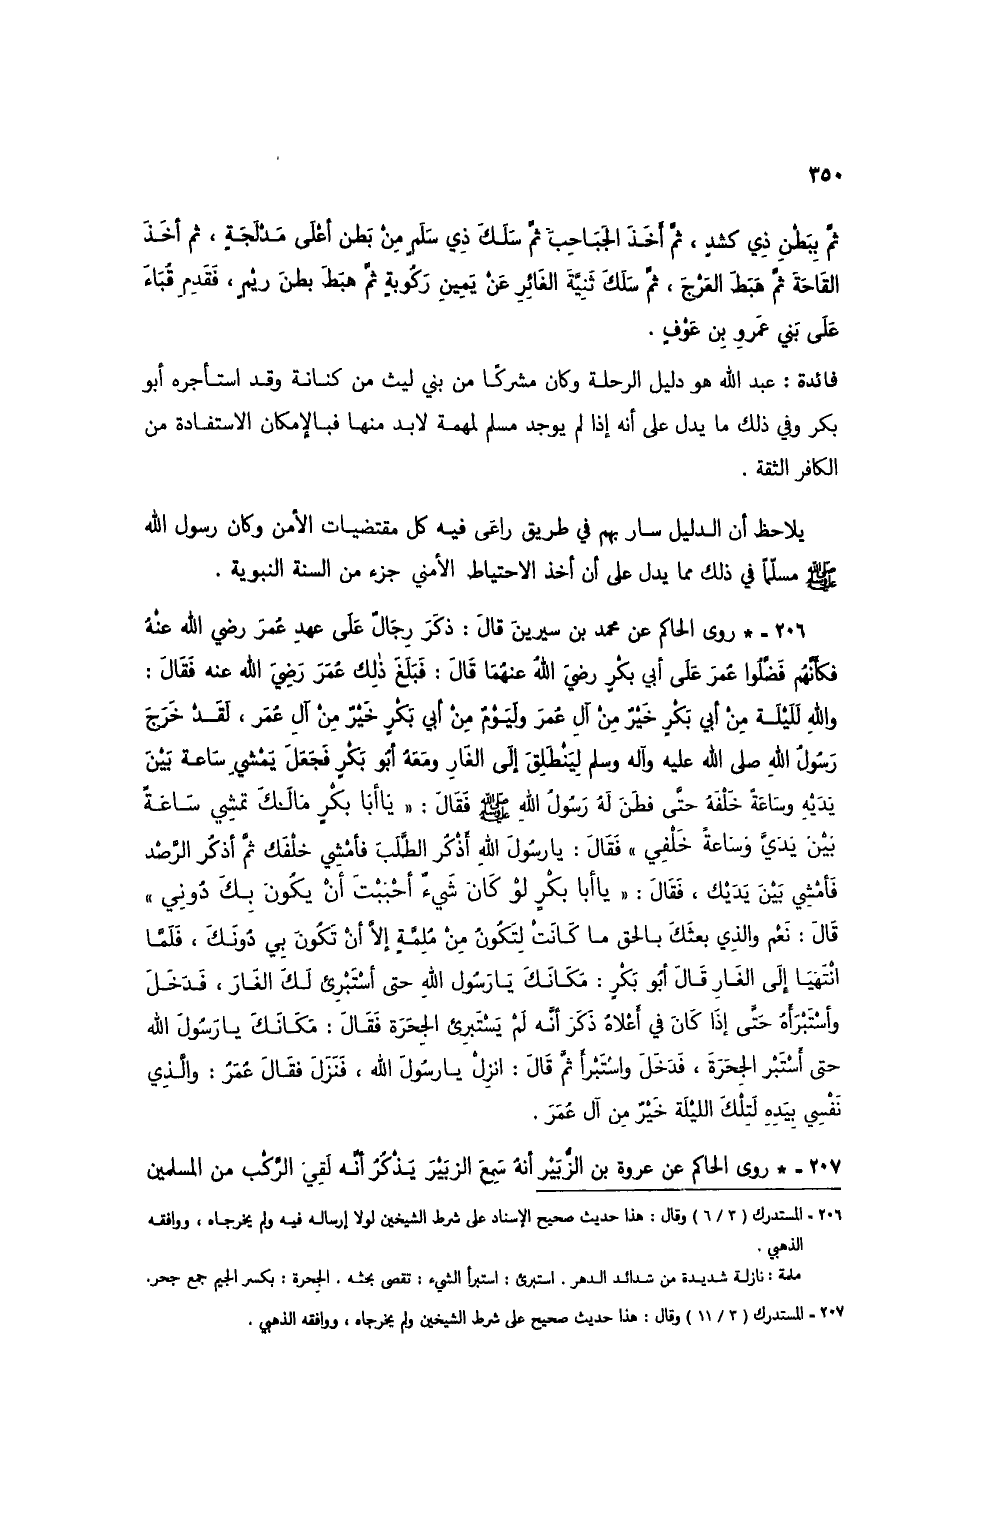 ٣٥٠
ثمَّ بِبَطْنِ ذِي كشدٍ ، ثمَّ أَخَذَ الجَبَاجِبَ ثمَّ سَلَكَ ذِي سَلَمٍ مِنْ بَطنِ أعْلَى مَدْلَجَةٍ ، ثم أخَذَ
القَاحَةَ ثمَّ هَبَطَ العَرْجَ ، ثمَّ سَلَكَ ثَنِيَّةَ الغَائِرِ عَنْ يَمِينِ رَكُوبةٍ ثمَّ هبَطَ بطنَ ريْمٍ ، فَقَدِمِ قُبَاءَ
عَلَى بَنِي عَمرِو بِن عَوْفٍ .
فائدة : عبد الله هو دليل الرحلة وكان مشركًا من بني ليث من كنانة وقد استأجره أبو
بكر وفي ذلك ما يدل على أنه إذا لم يوجد مسلم لمهمة لابد منها فبالإمكان الاستفادة من
الكافر الثقة .
يلاحظ أن الدليل سار بهم في طريق راعَى فيه كل مقتضيات الأمن وكان رسول الله
ﷺ مسلّمًا في ذلك مما يدل على أن أخذ الاحتياط الأمني جزء من السنة النبوية .
٢٠٦ - * روى الحاكم عن محمد بن سيرينَ قالَ : ذكَرَ رِجَالٌ عَلَى عهدِ عُمرَ رضي الله عنْهُ
فكأنَّهُم فَضَّلُوا عُمرَ عَلَى أبي بكْرٍ رضيَ اللهُ عنهُمَا قَالَ : فَبَلَغَ ذٰلِك عُمَرَ رَضِيَ الله عنه فَقَالَ :
واللهِ لَلَيْلَة مِنْ أبي بَكْرٍ خَيْرٌ مِنْ آلِ عُمرَ ولَيَوْمٌ مِنْ أبي بَكْرٍ خَيْرٌ مِنْ آلِ عُمَر ، لَقَدْ خَرَجَ
رَسُولُ اللهِ صلى الله عليه وآله وسلم لِيَنْطَلِقَ إلَى الغَارِ ومَعَهُ أبُو بَكْرٍ فَجَعَلَ يَمْشي سَاعة بَيْنَ
يَدَيْهِ وسَاعَةً خَلْفَهُ حتَّى فطَنَ لَهُ رَسُولُ اللهِ ﷺ فَقَالَ : « يَاأبَا بكْرٍ مَالَكَ تمشِي سَاعَةً
بَيْنَ يَدَيَّ وَسَاعةً خَلْفِي » فَقَالَ : يارسُولَ اللهِ أذْكُر الطَّلَبَ فأمْشِي خلْفَك ثمَّ أذكرُ الرَّصْد
فَأمْشِي بَيْنَ يَدَيْك ، فَقَالَ : « ياأبا بكْرٍ لوْ كَان شَيءٌ أحْبَبْتَ أنْ يكُونَ بِكَ دُونِي »
قَالَ : نَعْم والذي بعثَكَ بالحق ما كَانَتْ لِتَكُونَ مِنْ مُلِمَّةٍ إلاَّ أنْ تَكُونَ بِي دُونَكَ ، فَلَمَّا
انْتَهَيَا إلَى الغَارِ قَالَ أبُو بَكْرٍ : مَكَانَكَ يَارَسُول اللهِ حتى أسْتَبْرِئ لَكَ الغَارَ ، فَدَخَلَ
وأسْتَبْرَأَهُ حَتَّى إذَا كَانَ فِي أعْلاهُ ذَكَرَ أنَّه لَمْ يَسْتَبرِئ الجحَرَة فَقَالَ : مَكَانَكَ يارَسُولَ الله
حتى أَسْتَبْر الجحَرَةَ ، فَدَخَلَ واسْتَبْرأَ ثمَّ قَالَ : انزلْ يارسُولَ الله ، فَنَزَلَ فقَالَ عُمَرُ : والَّذِي
نَفْسِي بِيَدِهِ لَتِلْكَ الليْلَة خَيْرٌ مِن آل عُمَرَ .
٢٠٧ - * روى الحاكم عن عروة بن الزُّبَيْر أنهُ سَمِعَ الزبَيْرَ يَذْكُرُ أنَّه لَقِيَ الرَّكْب من المسلمين
٢٠٦ - المستدرك ( ٣ / ٦ ) وقال : هذا حديث صحيح الإسناد على شرط الشيخين لولا إرساله فيه ولم يخرجاه ، ووافقه
الذهبي .
ملمة : نازلة شديدة من شدائد الدهر . استبرئ : استبرأ الشيء : تقصى بحثه . الجحرة : بكسر الجيم جمع جحر.
٢٠٧ - المستدرك ( ٣ / ١١ ) وقال : هذا حديث صحيح على شرط الشيخين ولم يخرجاه ، ووافقه الذهبي .